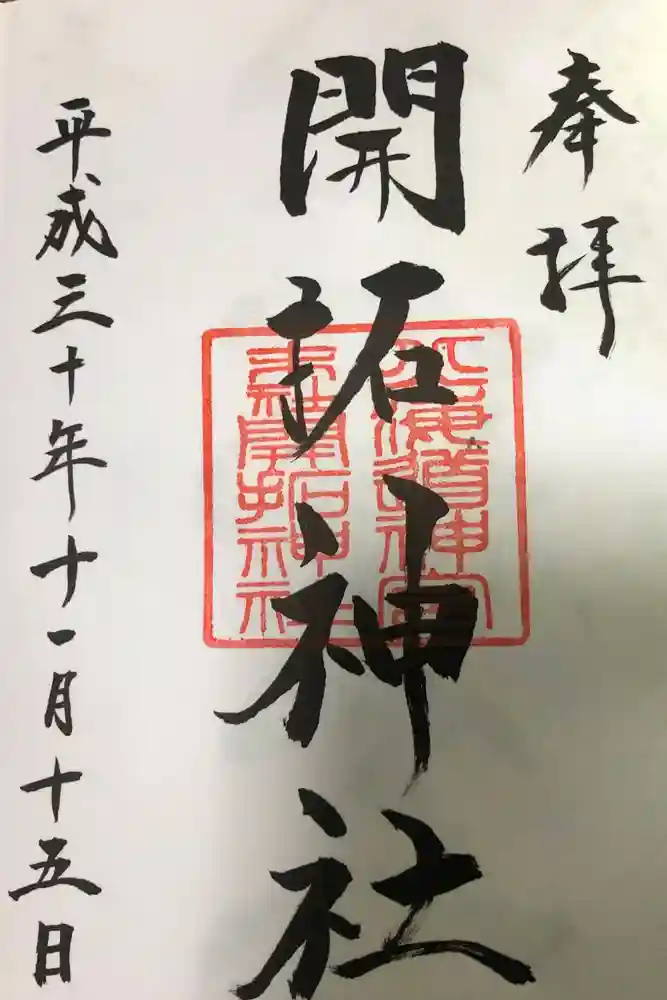 奉拝
開拓神社
北海道神宮
末社開拓神社
平成三十年十一月十五日